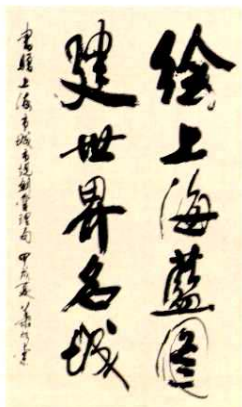 绘上海蓝图
建世界名城
书赠上海市城市规划管理局 甲戌夏